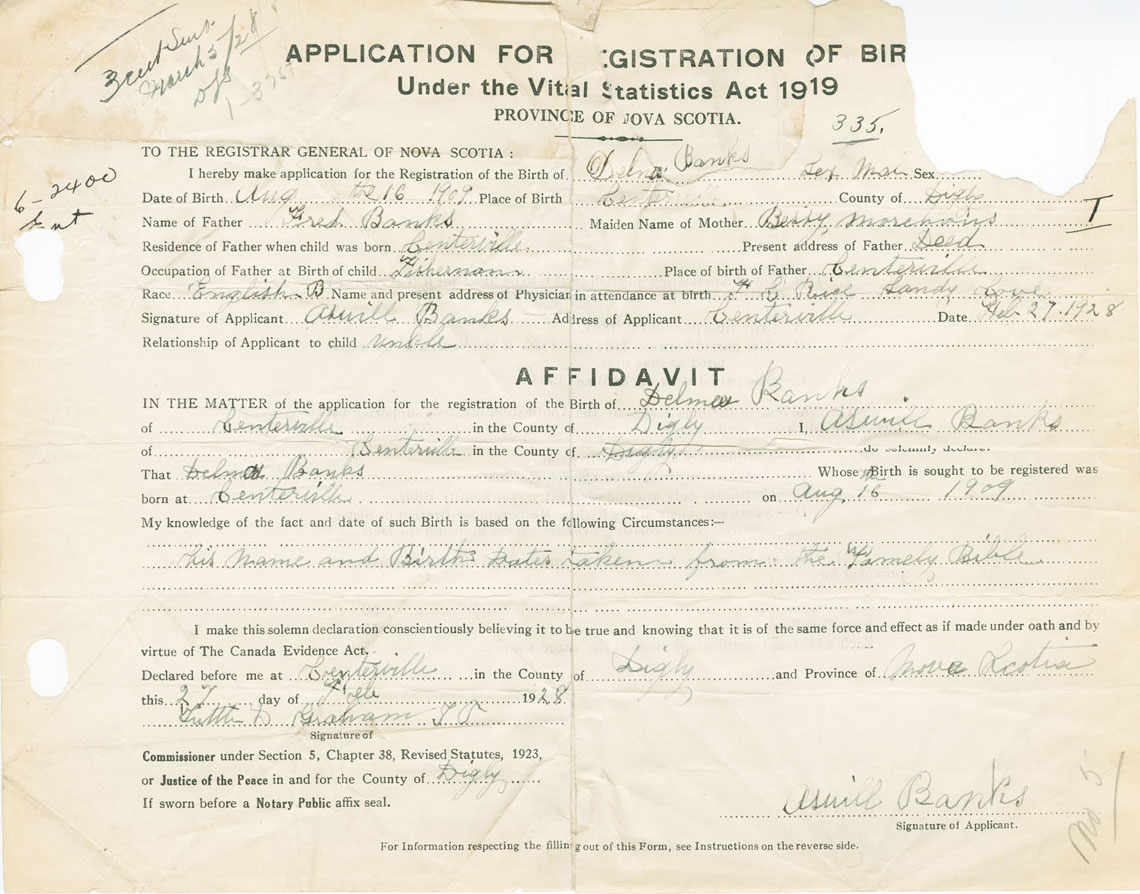 3 cert Sent
March 5/28
APPLICATION FOR EGISTRATION OF BIR
Under the Vital Statistics Act 1919
PROVINCE OF NOVA SCOTIA.
335.
TO THE REGISTRAR GENERAL OF NOVA SCOTIA :
I hereby make application for the Registration of the Birth of Delma Banks Sex Mal Sex
6-2400
Ent
Date of Birth Aug the 16 1909 Place of Birth Center County of Digby
Name of Father Fred Banks Maiden Name of Mother Bessy
Residence of Father when child was born Centerville Present address of Father Deed
Occupation of Father at Birth of child Fishermam Place of birth of Father Centerville
Race English B Name and present address of Physician in attendance at birth H L Rice Sandy Cove
Signature of Applicant Asuill Banks Address of Applicant Centerville Date Feb 27. 1928
Relationship of Applicant to child unkle
AFFIDAVIT
IN THE MATTER of the application for the registration of the Birth of Delma Banks
of Centerville in the County of Digby I, Asuill Banks
of Centerville in the County of Digby do solemnly declare:
That Delma Banks Whose Birth is sought to be registered was
born at Centerville on Aug 16 1909
My knowledge of the fact and date of such Birth is based on the following Circumstances:—
his name and Birth Dates taken from the Famely Bible
I make this solemn declaration conscientiously believing it to be true and knowing that it is of the same force and effect as if made under oath and by
virtue of The Canada Evidence Act.
Declared before me at Centerville in the County of Digby and Province of Nova Scotia
this 27 day of Feb 1928
Graham J P
Signature of
Commissioner under Section 5, Chapter 38, Revised Statutes, 1923,
or Justice of the Peace in and for the County of Digby
If sworn before a Notary Public affix seal.
Asuill Banks
Signature of Applicant.
No 5
For Information respecting the filling out of this Form, see Instructions on the reverse side.